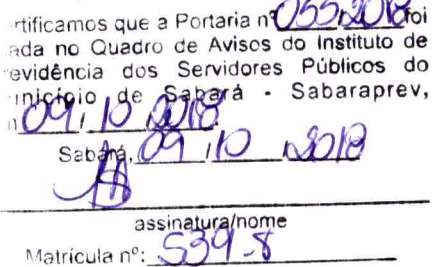 rtificamos que a Portaria nº 055/2018 foi
ada no Quadro de Avisos do Instituto de
evidência dos Servidores Públicos do
inicípio de Sabará - Sabaraprev,
09/10/2018.
Sabará, 09/10/2018
assinatura/nome
Matrícula nº: 539-8